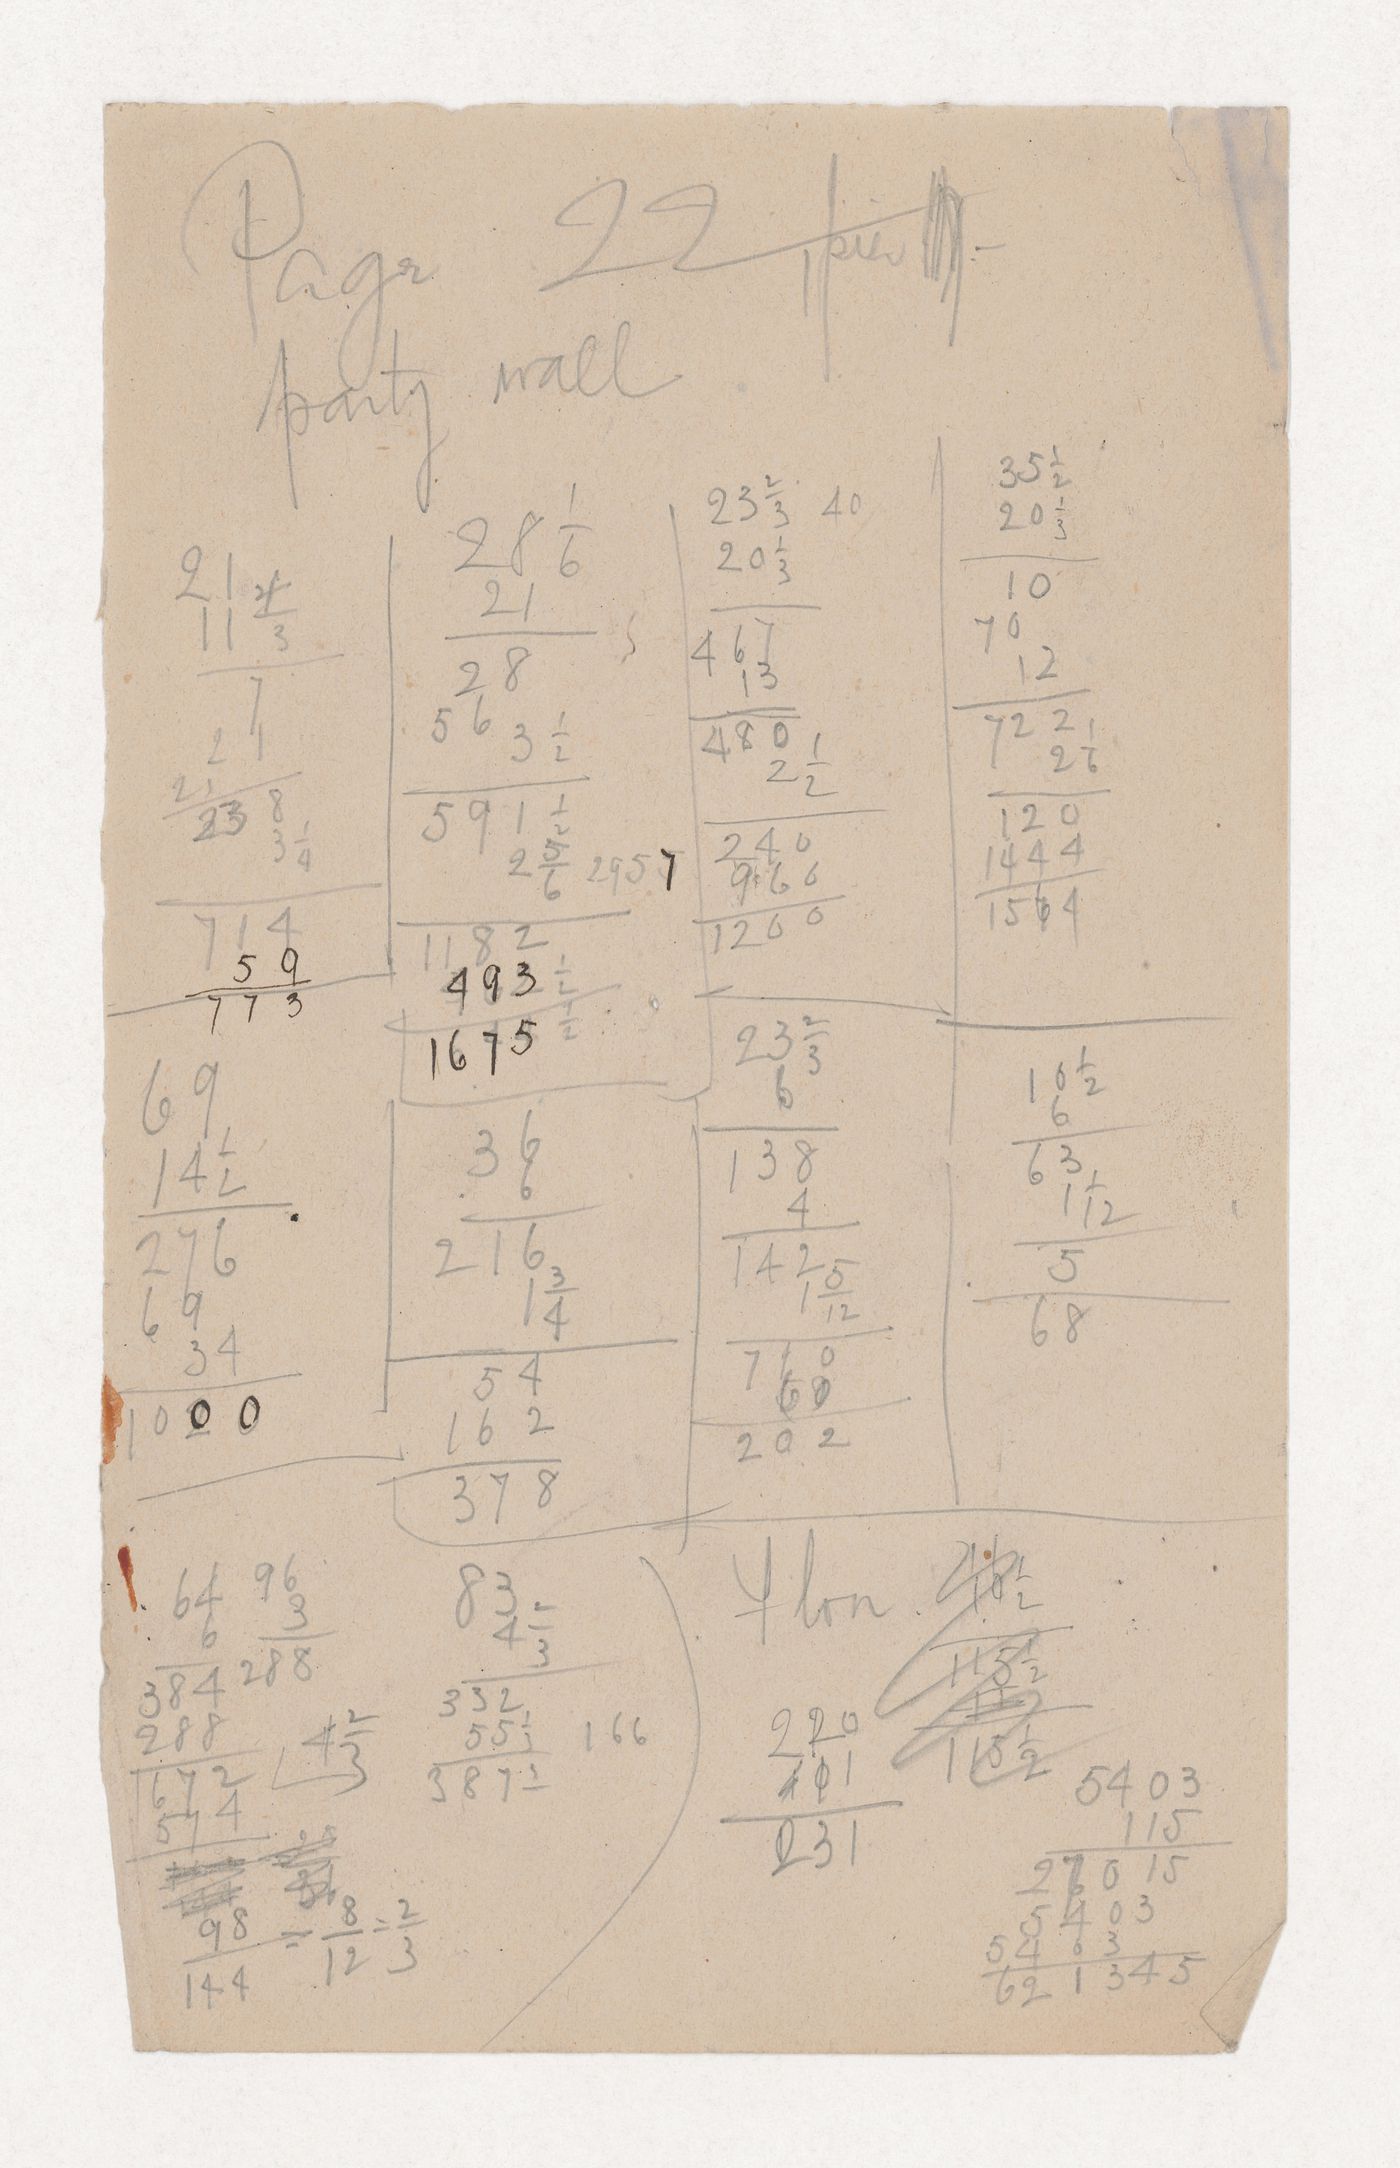 Page 22
party wall
21
11 2/3
7
21
21
23 8
3 1/4
714
59
773
28 1/6
21
28
56
3 1/2
591 1/2
2 5/6 2957
1182
493 1/2
1675 1/2
23 2/3 40
20 1/3
467
13
480
2 1/2
240
960
1200
35 1/2
20 1/3
10
70
12
722
2 1/6
120
1444
1564
69
14 1/2
276
69
34
1000
36
6
216
1 3/4
54
162
378
23 2/3
6
138
4
142
1 5/12
710
60
202
10 1/2
6
63
1 1/12
5
68
64
6
384
288
1672
574
96
3
288
4 2/3
98/144 = 8/12 = 2/3
83
4 2/3
332
55 1/3 166
387 1/3
115 1/2
115 1/2
220
231
5403
115
27015
5403
5403
621345